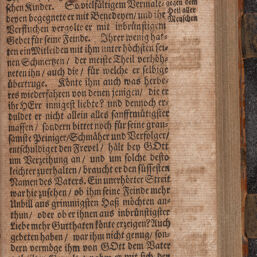 schen Kinder. So vielfältigem Vermale-
deyen begegnete er mit Benedeyen/ und ihr
Verfluchen vergolte er mit inbrünstigem
Gebet für seine Feinde. Ihrer wenig hat-
ten ein Mitleiden mit ihm unter höchsten sei-
nen Schmertzen/ der meiste Theil verhöh-
neten ihn/ auch die/ für welche er selbige
übertruge. Könte ihm auch was herbe-
res wiederfahren von denen jenigen/ die er
ihr HErr innigst liebte? und dennoch er-
duldet er nicht allein alles sanfftmütigster
massen/ sondern bittet noch für seine grau-
samste Peiniger/ Schmäher und Verfolger/
entschuldiget den Frevel/ hält bey GOtt
um Verzeihung an/ und um solche desto
leichter zuerhalten/ braucht er den süssesten
Namen des Vaters. Ein unerhörter Streit
war hie zusehen/ ob ihm seine Feinde mehr
Unbill aus grimmigstem Haß möchten an-
thun/ oder ob er ihnen aus inbrünstigster
Liebe mehr Gutthaten könte erzeigen? Auch
gebeten haben/ war ihm nicht genug/ son-
dern vermöge ihm von GOtt dem Vater
gegen dem
Heil aller
Menschen